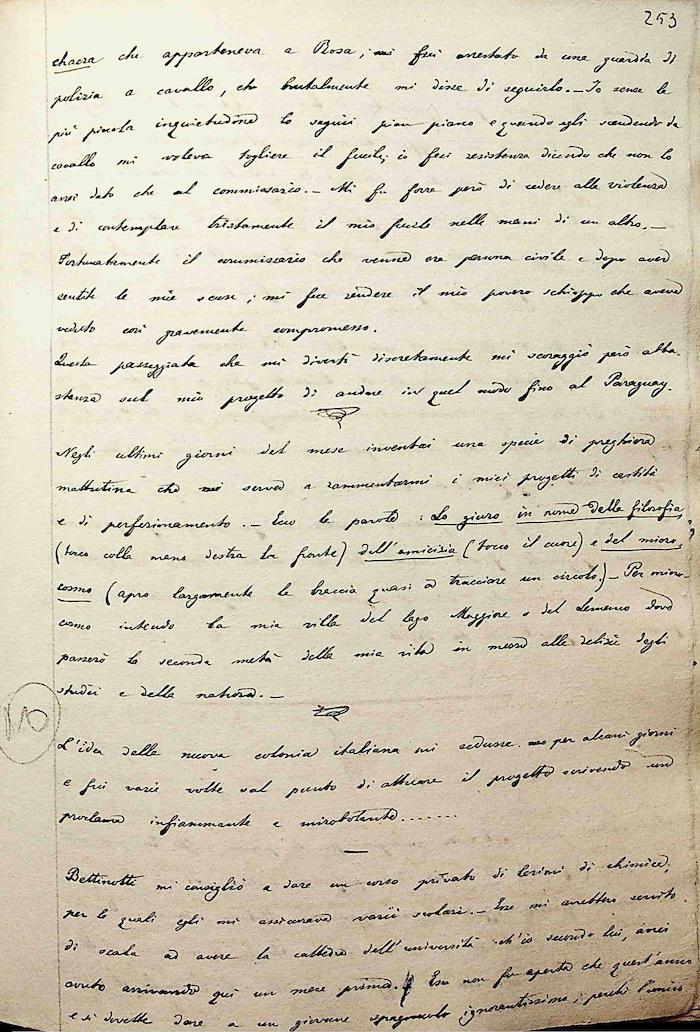 253
chacra che apparteneva a Rosa; mi fui arrestato da una guardia di
polizia a cavallo, che brutalmente mi disse di seguirlo. — Io senza la
più piccola inquietudine lo seguii pian piano e quando egli scendendo da
cavallo mi voleva togliere il fucile, io feci resistenza dicendo che non lo
avrei dato che al commissario. — Mi fu forza però di cedere alla violenza
e di contemplare tristamente il mio fucile nelle mani di un altro. —
Fortunatamente il commissario che venne era persona civile e dopo aver
sentite le mie scuse; mi fece rendere il mio povero schioppo che aveva
veduto così gravemente compromesso.
Questa passeggiata che mi divertì discretamente mi scoraggiò però abba-
stanza sul mio progetto di andare in quel modo fino al Paraguay.
Negli ultimi giorni del mese inventai una specie di preghiera
mattutina che mi serve a rammentarmi i miei progetti di castità
e di perfezionamento. — Ecco le parole: Lo giuro in nome della filosofia,
(tocco colla mano destra la fronte) dell'amicizia (tocco il cuore) e del micro-
cosmo (apro largamente le braccia quasi a tracciare un circolo.) — Per micro-
cosmo intendo la mia villa del lago Maggiore o del Lemano dove
passerò la seconda metà della mia vita in mezzo alle delizie degli
studii e della natura. —
L'idea della nuova colonia italiana mi sedusse per alcuni giorni
e fui varie volte sul punto di attuare il progetto scrivendo un
proclama infiammante e mirabolante.......
Bettinotti mi consigliò a dare un corso privato di lezioni di chimica,
per le quali egli mi assicurava varii scolari. — Esse mi avrebbero servito
di scala ad avere la cattedra dell'università ch'io secondo lui, avrei
avuto arrivando qui un mese prima. Essa non fu aperta che quest'anno
e si dovette dare a un giovane spagnuolo ignorantissimo, perchè l'unico